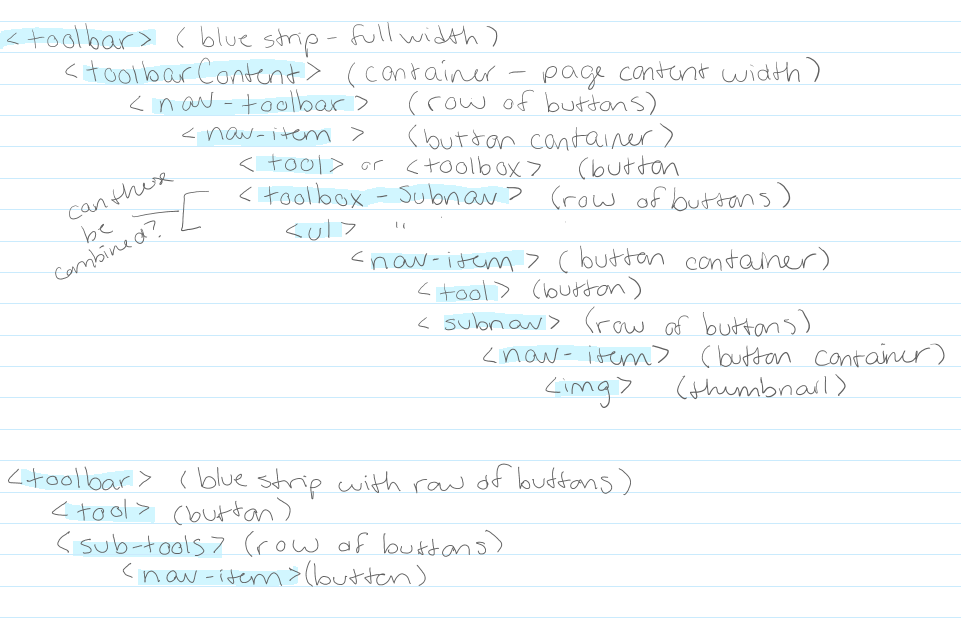 <toolbar> (blue strip - full width)
<toolbarContent> (container - page content width)
<nav-toolbar> (row of buttons)
<nav-item> (button container)
<tool> or <toolbox> (button
can these
be
combined?
<toolbox-Subnav> (row of buttons)
<ul> "
<nav-item> (button container)
<tool> (button)
<subnav> (row of buttons)
<nav-item> (button container)
<img> (thumbnail)
<toolbar> (blue strip with row of buttons)
<tool> (button)
<sub-tools> (row of buttons)
<nav-item> (button)